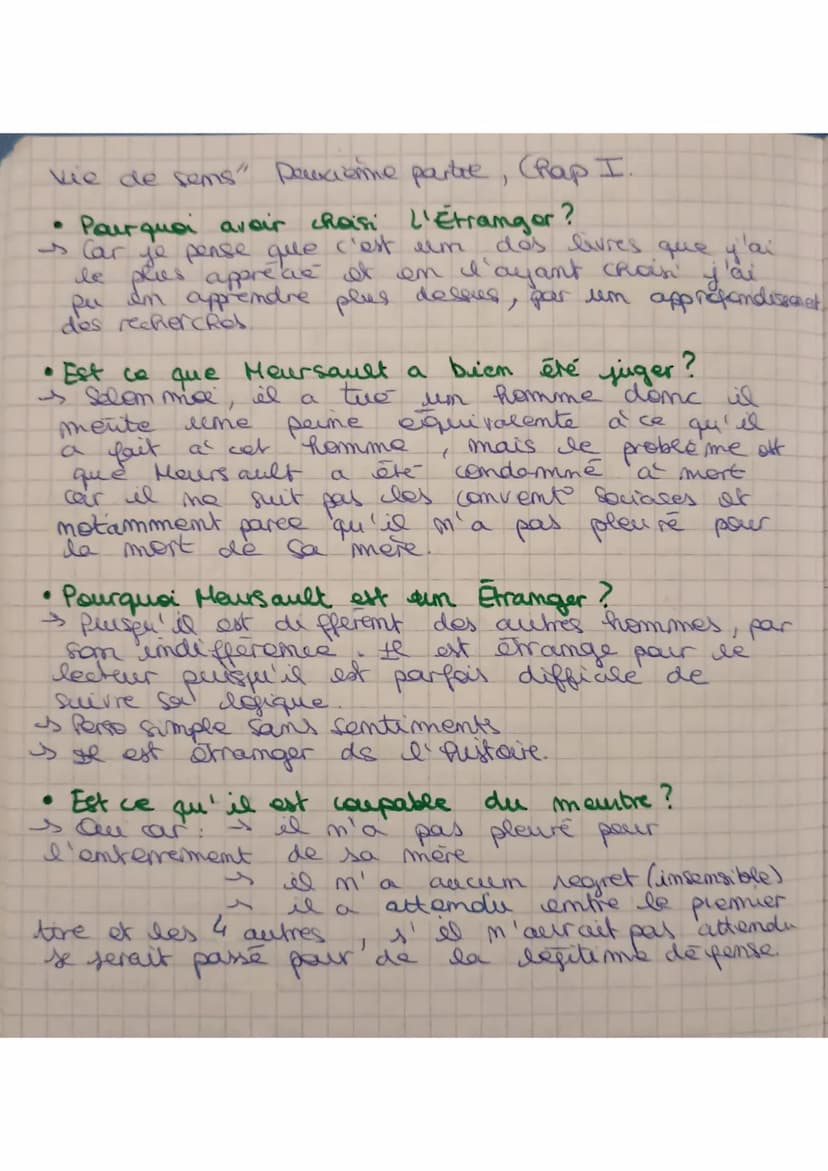 vie de sens" Deuxième partie, Chap I.
• Pourquoi avoir choisi L'Étranger?
→ Car je pense que c'est un des livres que j'ai
le plus apprécié et en l'ayant choisi j'ai
pu en apprendre plus dessus, par un approfondissement
des recherches
• Est ce que Meursault a bien été juger?
→ Selon moi, il a tué un homme donc il
mérite une peine équivalente à ce qu'il
a fait à cet homme, mais le problème est
que Meursault a été condamné à mort
car il ne suit pas les convent° sociales et
notamment parce qu'il n'a pas pleuré pour
la mort de sa mère.
• Pourquoi Meursault est un Étranger?
→ Puisqu'il est différent des autres hommes, par
son indifférence. Il est étrange pour le
lecteur puisqu'il est parfois difficile de
suivre sa logique.
→ Perso simple sans sentiments
→ Il est étranger ds l'histoire.
• Est ce qu'il est coupable du meurtre?
→ Oui car: → il n'a pas pleuré pour
l'enterrement de sa mère
→ il n'a aucun regret (insensible)
→ il a attendu entre le premier
tire et les 4 autres, s'il n'aurait pas attendu
se serait passé pour de la légitime défense.